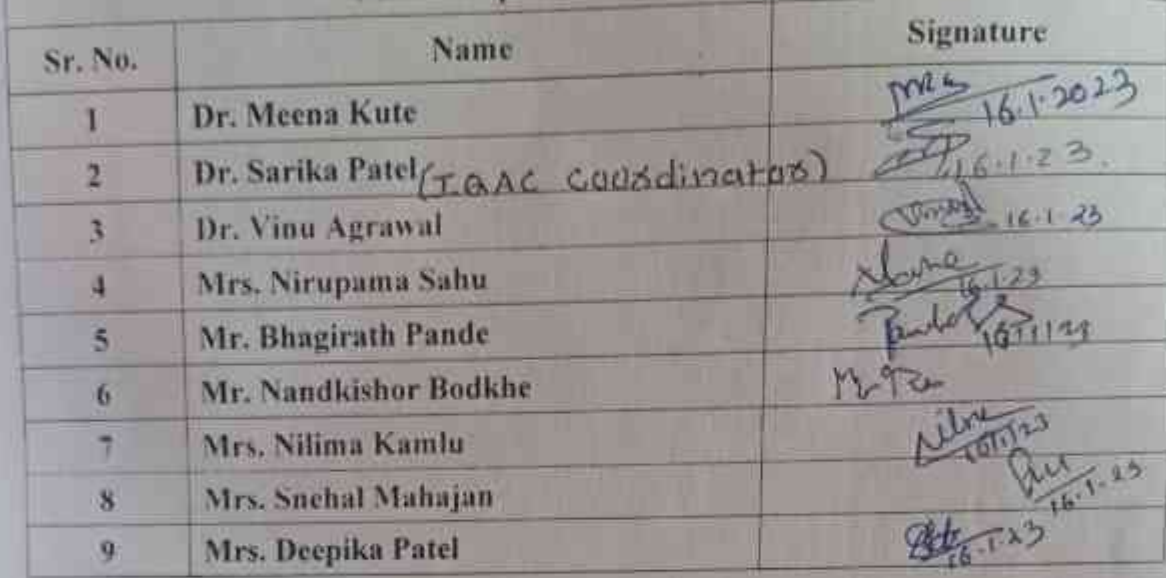 Sr. No. Name Signature
1 Dr. Meena Kute 16.1.2023
2 Dr. Sarika Patel (IQAC Coordinator) 16.1.23.
3 Dr. Vinu Agrawal 16.1.23
4 Mrs. Nirupama Sahu 16.1.23
5 Mr. Bhagirath Pande 16/1/23
6 Mr. Nandkishor Bodkhe
7 Mrs. Nilima Kamlu 16/1/23
8 Mrs. Snehal Mahajan 16.1.23
9 Mrs. Deepika Patel 16.1.23